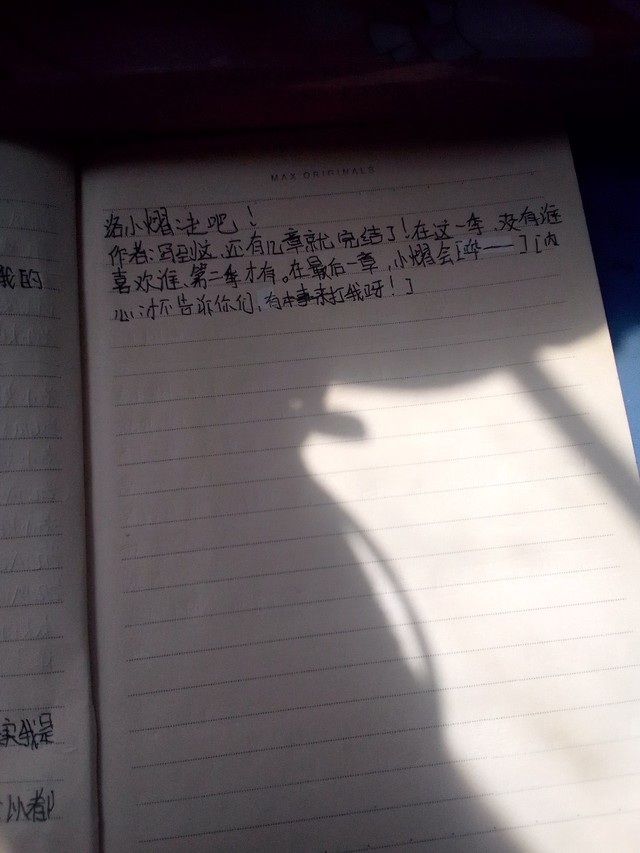 MAX ORIGINALS
洛小熠:走吧!
作者:写到这,还有几章就完结了!在这一季,没有谁
喜欢谁、第二季才有。在最后一章,小熠会[哔——][内
心:才不告诉你们,有本事来打我呀!]
我的
我是
以都